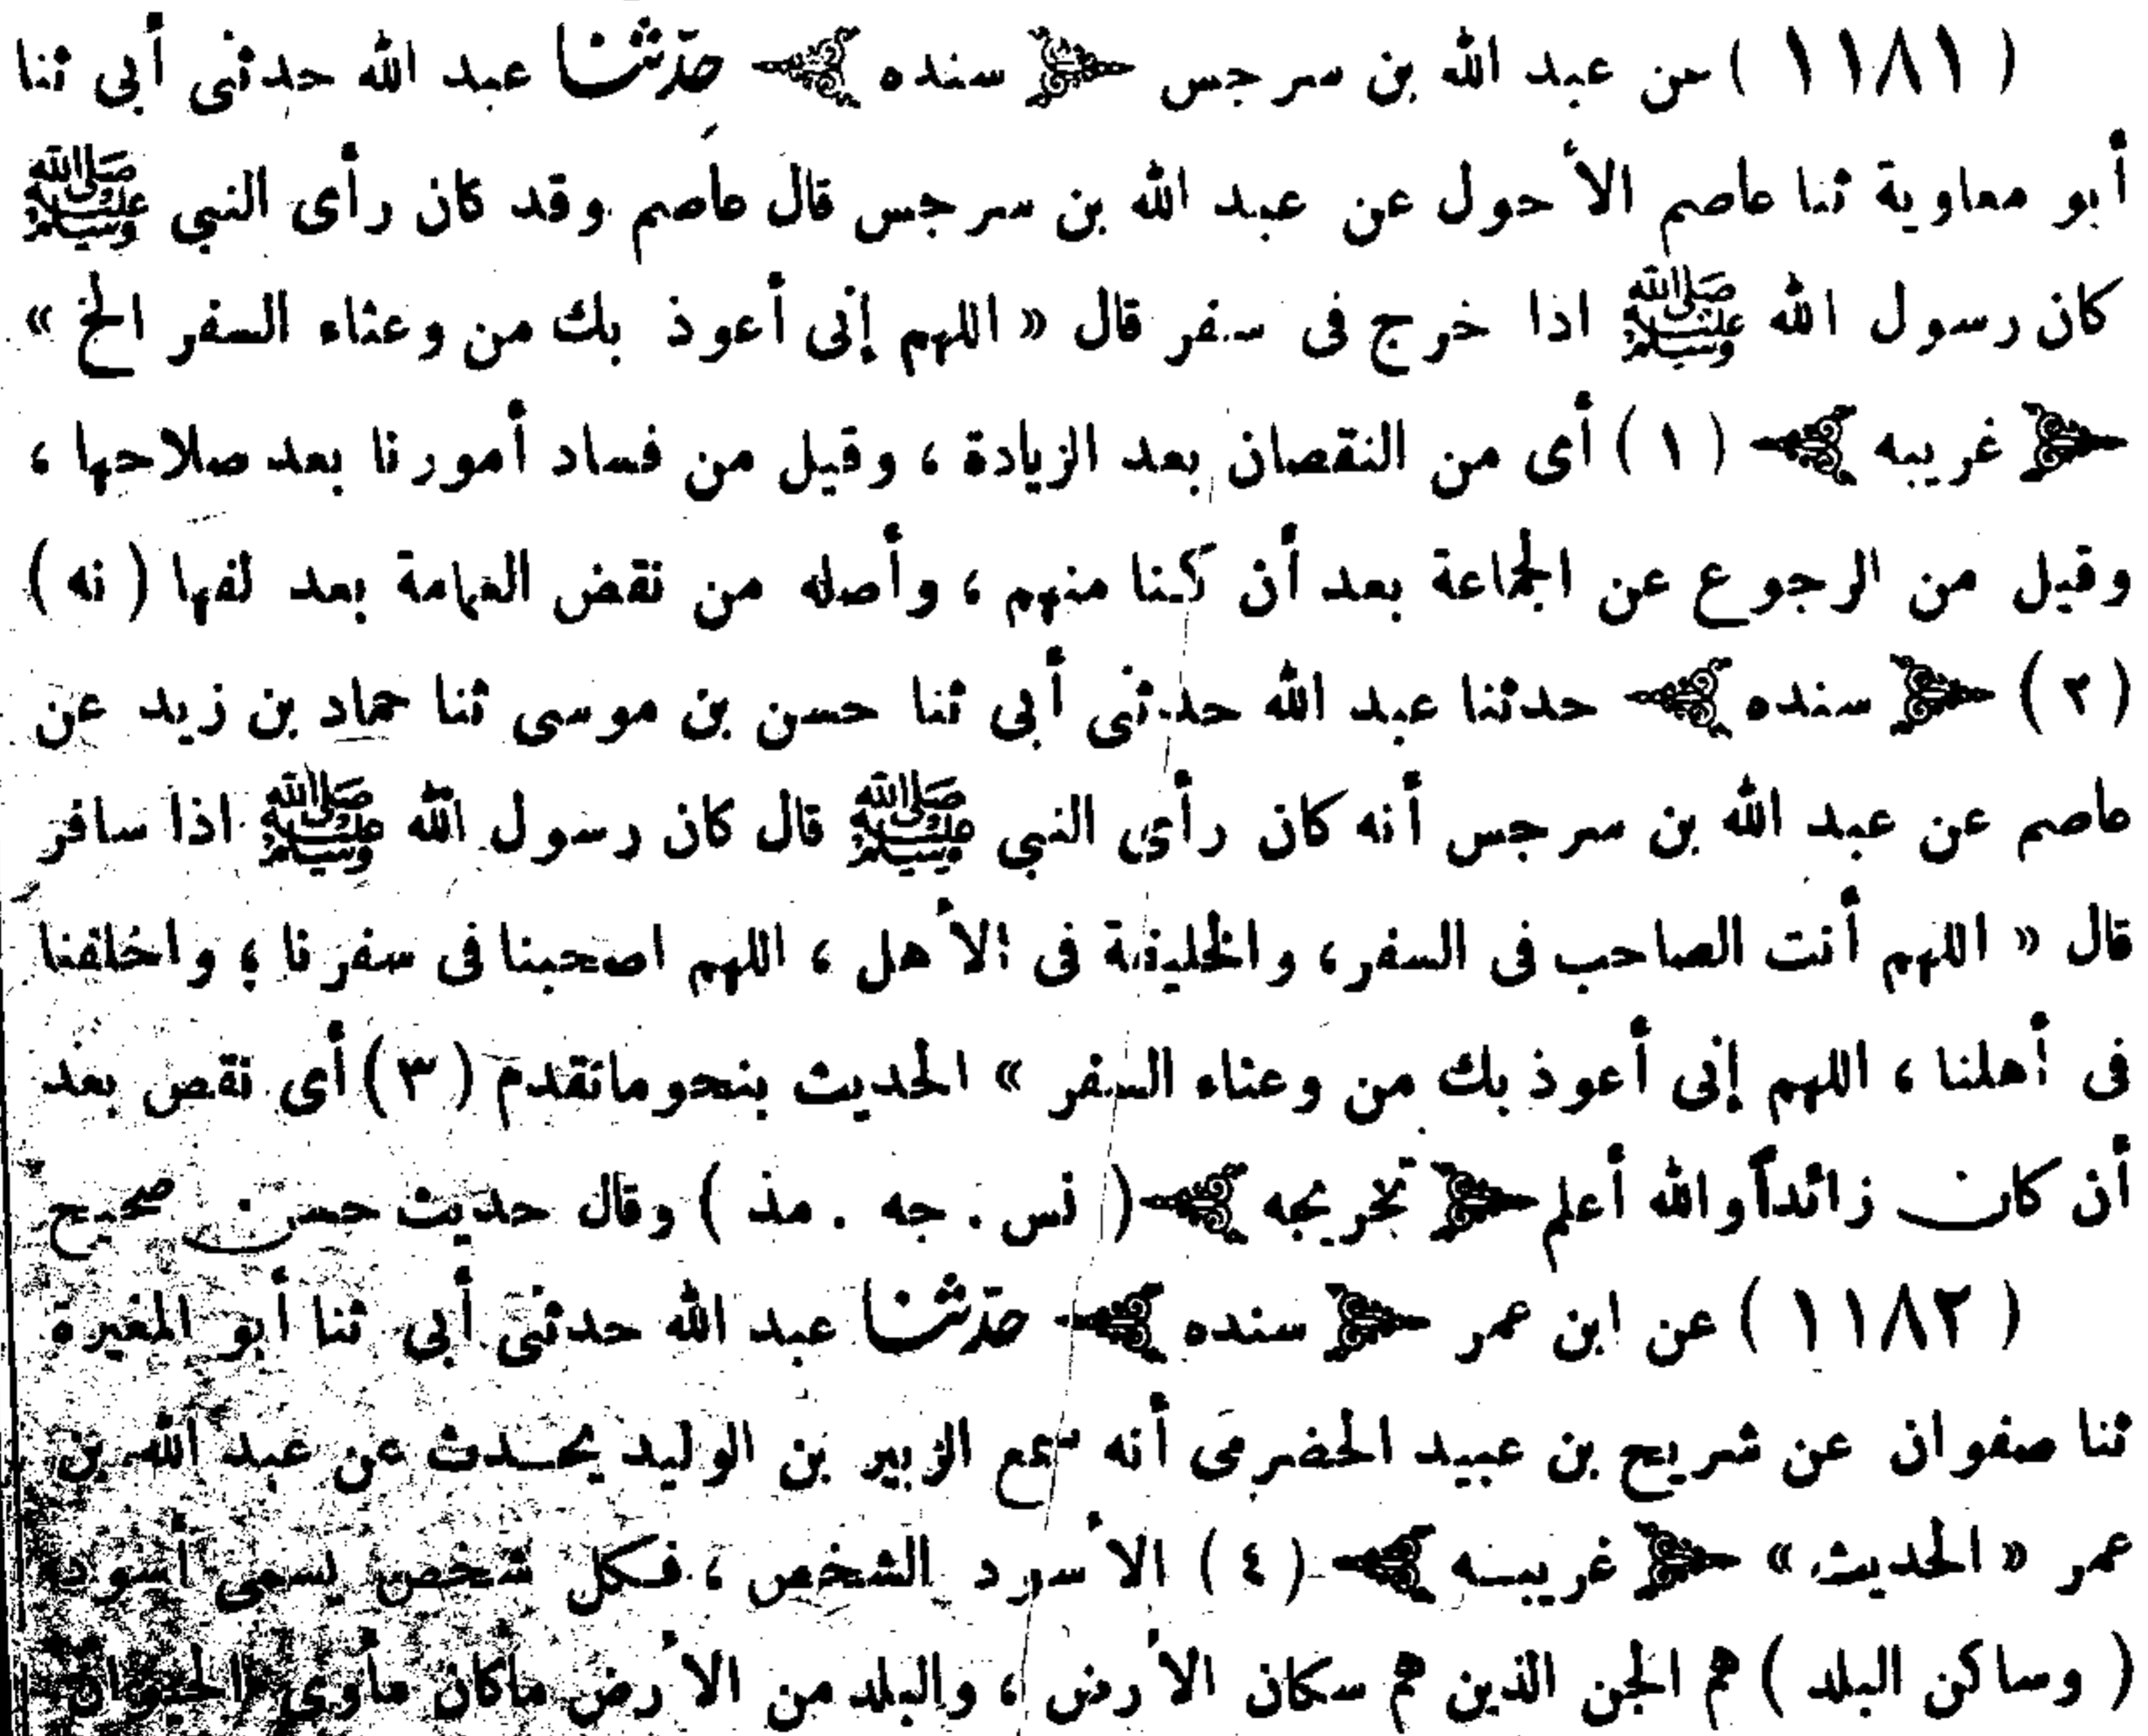 ( ١١٨١ ) عن عبد الله بن سرجس ﴿ سنده ﴾ حدثنا عبد الله حدثنى أبى ثنا
أبو معاوية ثنا عاصم الأحول عن عبد الله بن سرجس قال عاصم وقد كان رأى النبي ﷺ
كان رسول الله ﷺ اذا خرج فى سفر قال « اللهم إنى أعوذ بك من وعثاء السفر الخ »
﴿ غريبه ﴾ ( ١ ) أى من النقصان بعد الزيادة ، وقيل من فساد أمورنا بعد صلاحها ،
وقيل من الرجوع عن الجماعة بعد أن كنا منهم ، وأصله من نقض العمامة بعد لفها ( نه )
( ٢ ) ﴿ سنده ﴾ حدثنا عبد الله حدثنى أبى ثنا حسن بن موسى ثنا حماد بن زيد عن
عاصم عن عبد الله بن سرجس أنه كان رأى النبي ﷺ قال كان رسول الله ﷺ اذا سافر
قال « اللهم أنت الصاحب فى السفر ، والخليفة فى الأهل ، اللهم اصحبنا فى سفرنا ، واخلفنا
فى أهلنا ، اللهم إنى أعوذ بك من وعثاء السفر » الحديث بنحو ماتقدم ( ٣ ) أى نقص بعد
أن كان زائداً والله أعلم ﴿ تخريجه ﴾ ( نس . جه . مذ ) وقال حديث حسن صحيح
( ١١٨٢ ) عن ابن عمر ﴿ سنده ﴾ حدثنا عبد الله حدثنى أبى ثنا أبو المغيرة
ثنا صفوان عن شريح بن عبيد الحضرمى أنه سمع الزبير بن الوليد يحدث عن عبد الله بن
عمر « الحديث » ﴿ غريبه ﴾ ( ٤ ) الأسود الشخص ، فكل شخص يسمى أسود
( وساكن البلد ) هم الجن الذين هم سكان الأرض ، والبلد من الأرض ماكان مأوى الحيوان